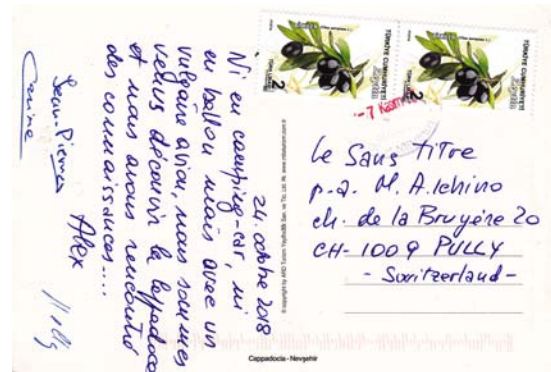 24 octobre 2018
Ni en camping-car, ni
en ballon mais avec un
vulgaire avion, nous sommes
venus découvrir la Cappadoce
et nous avons rencontré
des connaissances....
Jean-Pierre
Alex
Carine
TÜRKİYE CUMHURİYETİ
2
TÜRKİYE CUMHURİYETİ
Le Sans Titre
p.a. M. A. Ichino
ch. de la Bruyère 20
CH-1009 PULLY
- Switzerland -
Cappadocia - Nevşehir